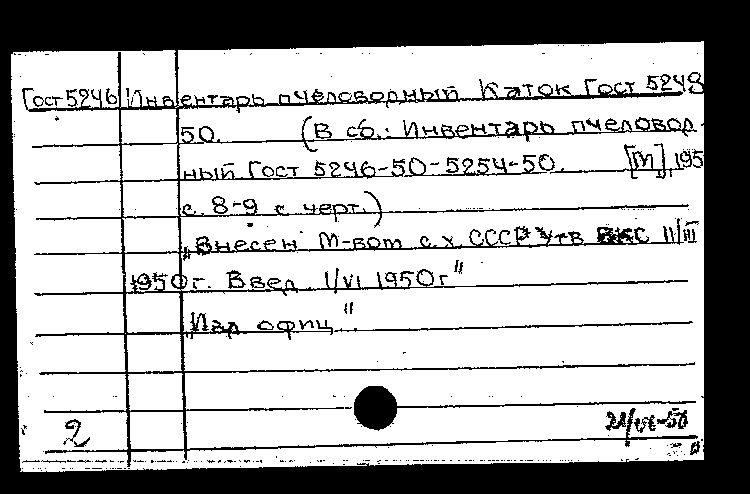 Гост 5246 Инвентарь пчеловодный Каток Гост 5248
50. (В сб.: Инвентарь пчеловод-
ный Гост 5246-50-5254-50. [М], 195
с. 8-9 с черт.)
„Внесен М-вом с.х СССР Утв ВКС II/III
1950г. Введ. I/VI 1950г"
„Изд офиц".
2